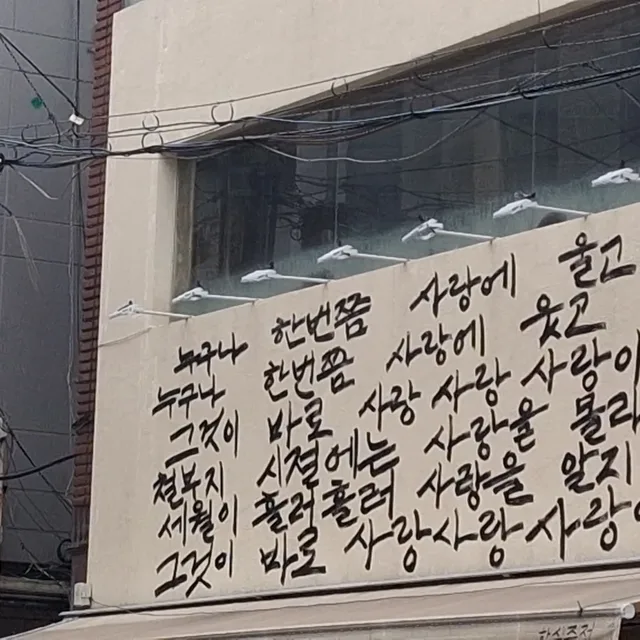 누구나 한번쯤 사랑에 울고
누구나 한번쯤 사랑에 웃고
그것이 바로 사랑 사랑 사랑이
철부지 시절에는 사랑을 몰라
세월이 흘러흘러 사랑을 알지
그것이 바로 사랑사랑사랑